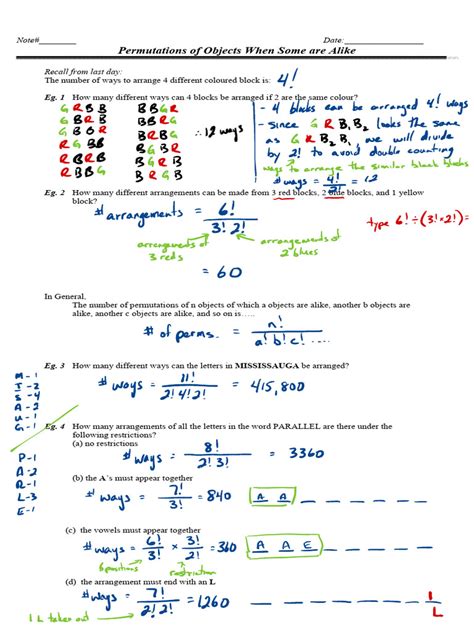 Note#________ Date:________________
Permutations of Objects When Some are Alike
Recall from last day:
The number of ways to arrange 4 different coloured block is: 4!
Eg. 1 How many different ways can 4 blocks be arranged if 2 are the same colour?
G R B B B B G R
- 4 blocks can be arranged 4! ways
- since G R B₁ B₂ looks the same
as G R B₂ B₁ we will divide
by 2! to avoid double counting
ways to arrange the similar black blocks
# ways = 4!/2! = 12
∴ 12 ways
Eg. 2 How many different arrangements can be made from 3 red blocks, 2 blue blocks, and 1 yellow
block?
# arrangements = 6!/(3! 2!)
type 6! ÷ (3! × 2!)
arrangements of 3 reds
arrangements of 2 blues
= 60
In General,
The number of permutations of n objects of which a objects are alike, another b objects are
alike, another c objects are alike, and so on is…..
# of perms. = n!/(a! b! c! ...)
Eg. 3 How many different ways can the letters in MISSISSAUGA be arranged?
M-1
I-2
S-4
A-2
U-1
G-1
# ways = 11!/(2! 4! 2!) = 415,800
Eg. 4 How many arrangements of all the letters in the word PARALLEL are there under the
following restrictions?
(a) no restrictions
P-1
A-2
R-1
L-3
E-1
# ways = 8!/(2! 3!) = 3360
(b) the A's must appear together
# ways = 7!/3! = 840 A A _ _ _ _ _ _
(c) the vowels must appear together
# ways = 6!/3! × 3!/2! = 360 A A E _ _ _ _ _
6 positions restriction
(d) the arrangement must end with an L
# ways = 7!/(2! 2!) = 1260 _ _ _ _ _ _ _ 1/L
1 L taken out